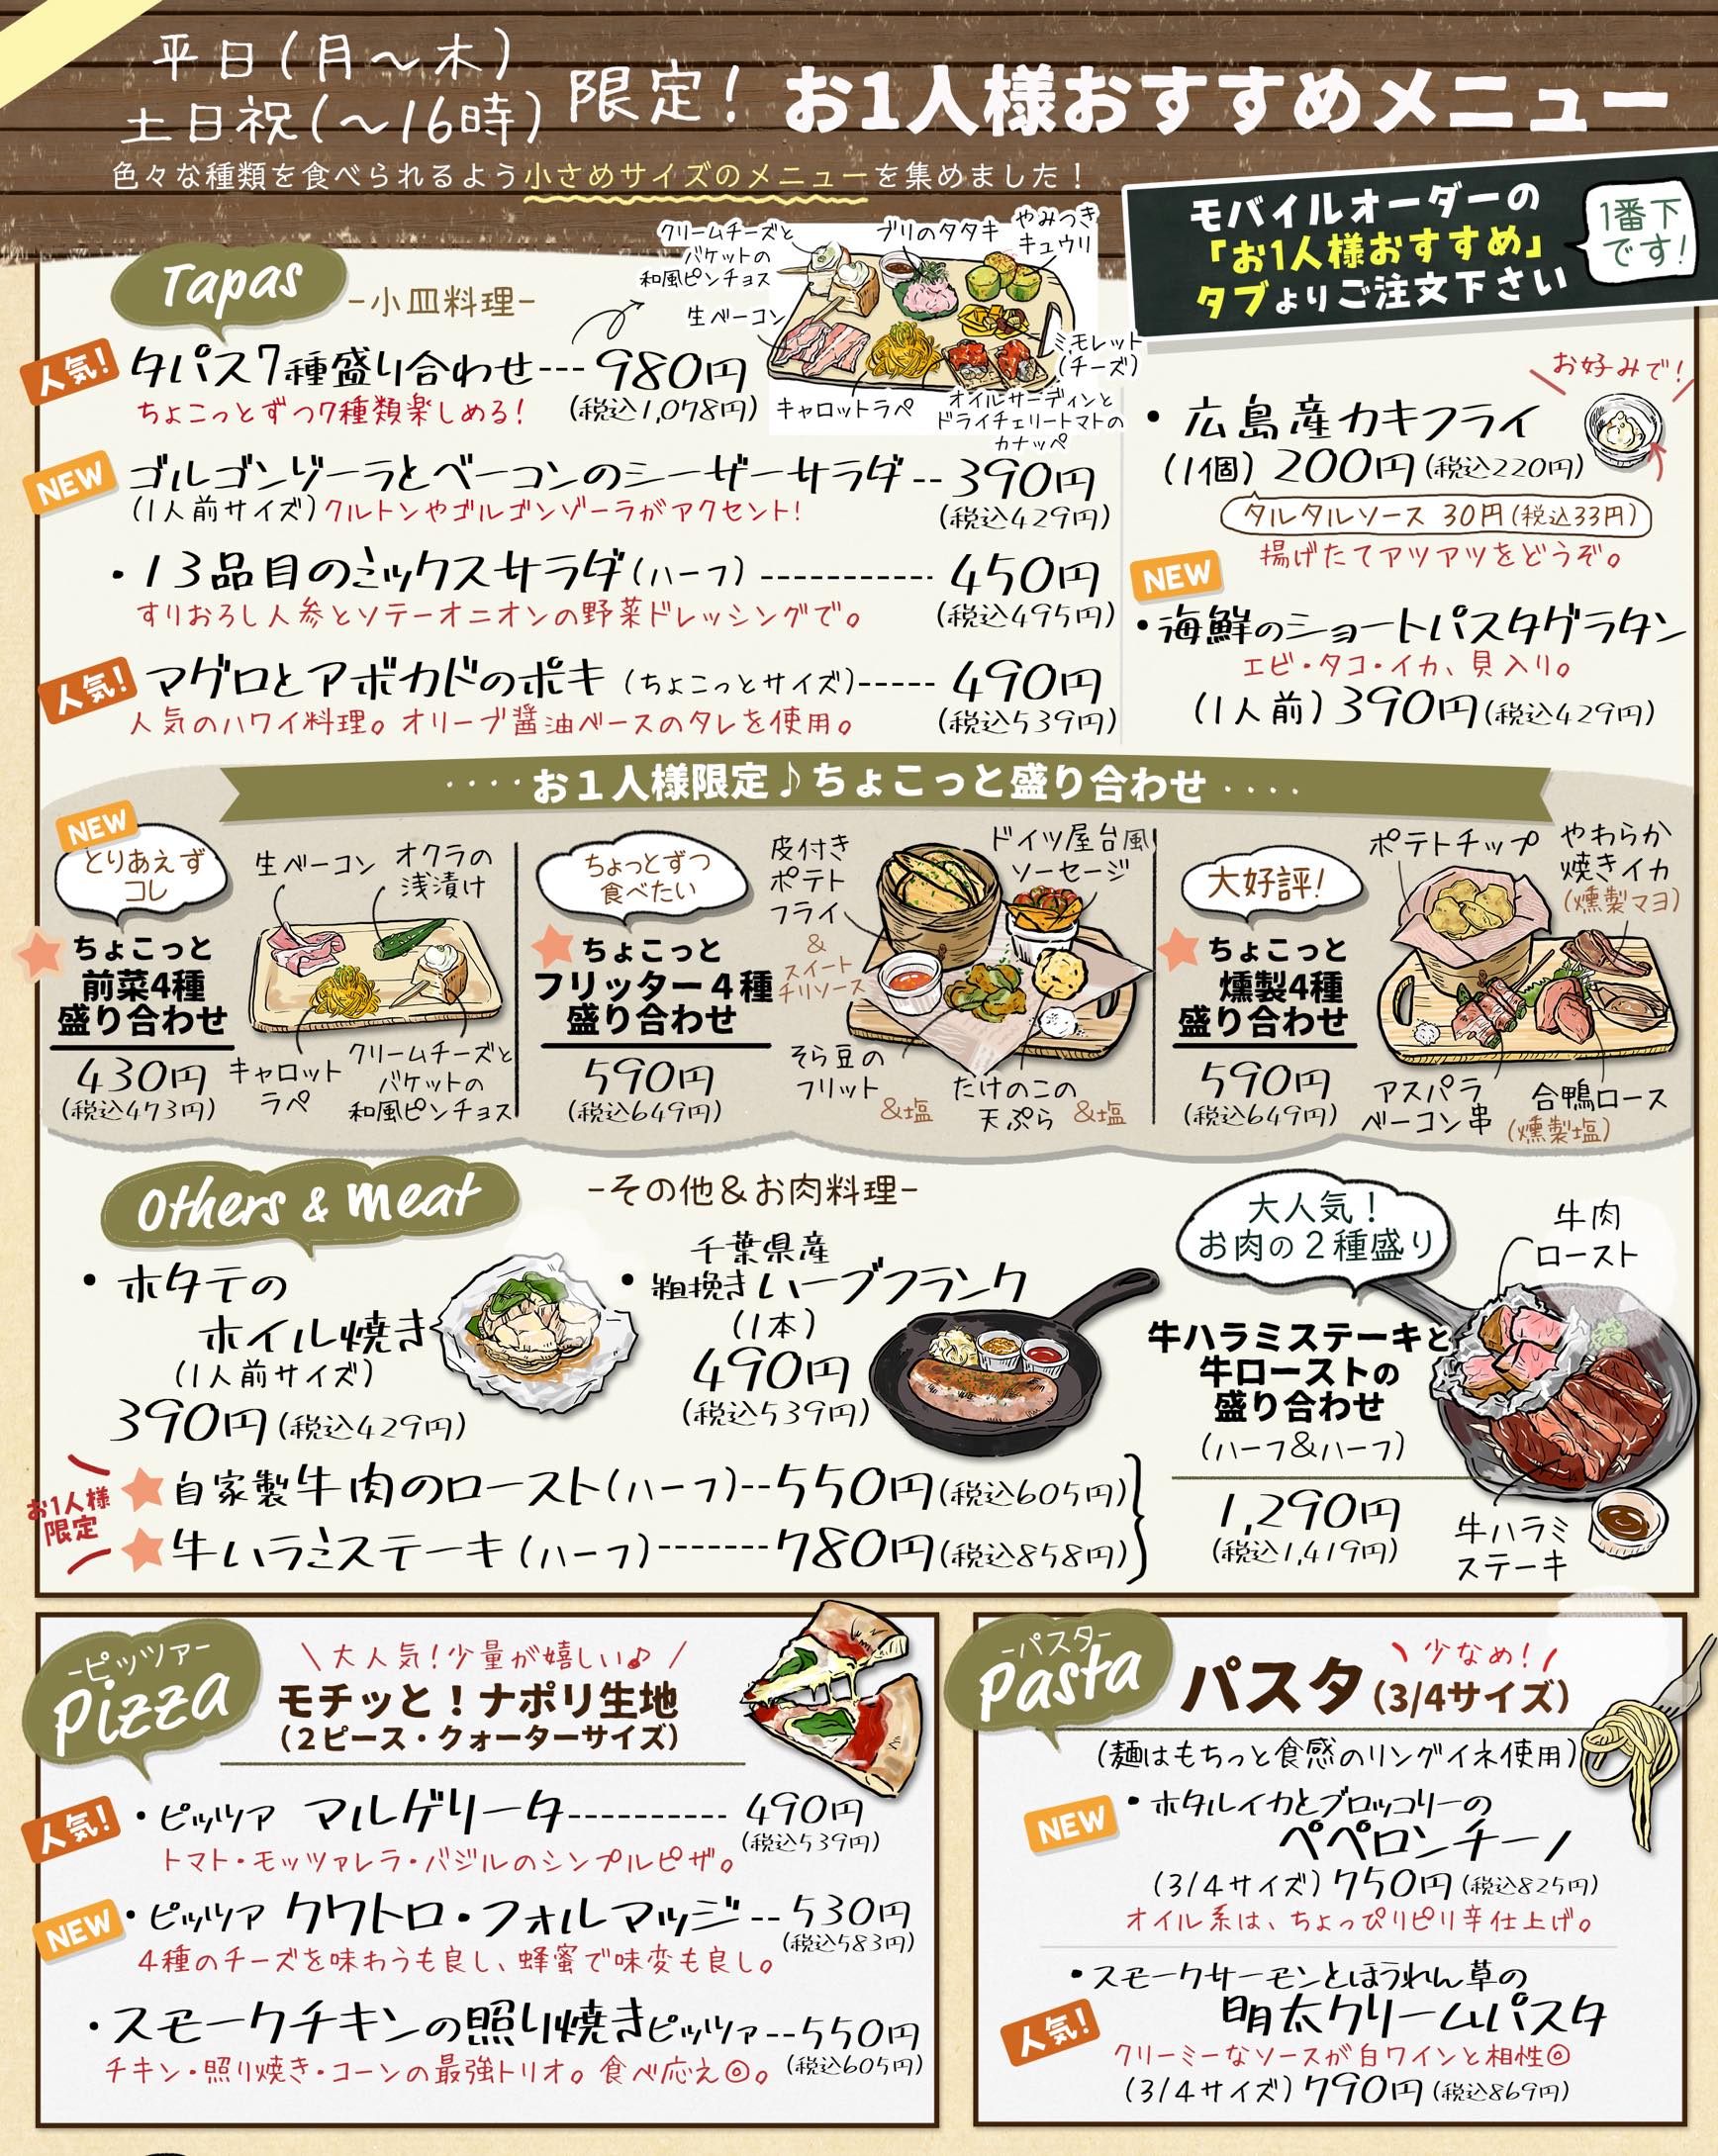 平日(月～木)
土日祝(～16時)
限定!
お1人様おすすめメニュー
色々な種類を食べられるよう小さめサイズのメニューを集めました!
モバイルオーダーの
「お1人様おすすめ」
タブよりご注文下さい
1番下
です!
Tapas
-小皿料理-
クリームチーズと
バケットの
和風ピンチョス
ブリのタタキ
やみつき
キュウリ
生ベーコン
ミモレット
(チーズ)
キャロットラペ
オイルサーディンと
ドライチェリートマトの
カナッペ
人気!
タパス7種盛り合わせ---980円
ちょこっとずつ7種類楽しめる!
(税込1,078円)
NEW
ゴルゴンゾーラとベーコンのシーザーサラダ--390円
(1人前サイズ)クルトンやゴルゴンゾーラがアクセント!
(税込429円)
・13品目のミックスサラダ(ハーフ)-----------450円
すりおろし人参とソテーオニオンの野菜ドレッシングで。
(税込495円)
人気!
マグロとアボカドのポキ(ちょこっとサイズ)-----490円
人気のハワイ料理。オリーブ醤油ベースのタレを使用。
(税込539円)
お好みで!
・広島産カキフライ
(1個)200円(税込220円)
タルタルソース 30円(税込33円)
揚げたてアツアツをどうぞ。
NEW
・海鮮のショートパスタグラタン
エビ・タコ・イカ、貝入り。
(1人前)390円(税込429円)
····お1人様限定♪ちょこっと盛り合わせ····
NEW
とりあえず
コレ
ちょこっと
前菜4種
盛り合わせ
430円
(税込473円)
生ベーコン
オクラの
浅漬け
キャロット
ラペ
クリームチーズと
バケットの
和風ピンチョス
ちょっとずつ
食べたい
ちょこっと
フリッター4種
盛り合わせ
590円
(税込649円)
皮付き
ポテト
フライ
&
スイート
チリソース
ドイツ屋台風
ソーセージ
そら豆の
フリット
&塩
たけのこの
天ぷら
&塩
大好評!
ちょこっと
燻製4種
盛り合わせ
590円
(税込649円)
ポテトチップ
やわらか
焼きイカ
(燻製マヨ)
アスパラ
ベーコン串
合鴨ロース
(燻製塩)
Others & meat
-その他&お肉料理-
・ホタテの
ホイル焼き
(1人前サイズ)
390円(税込429円)
千葉県産
・粗挽きハーブフランク
(1本)
490円
(税込539円)
お1人様
限定
自家製牛肉のロースト(ハーフ)--550円(税込605円)
牛ハラミステーキ(ハーフ)-------780円(税込858円)
大人気!
お肉の2種盛り
牛肉
ロースト
牛ハラミステーキと
牛ローストの
盛り合わせ
(ハーフ&ハーフ)
1,290円
(税込1,419円)
牛ハラミ
ステーキ
-ピッツァ-
Pizza
大人気!少量が嬉しい♪
モチッと!ナポリ生地
(2ピース・クォーターサイズ)
人気!
・ピッツァ マルゲリータ----------490円
(税込539円)
トマト・モッツァレラ・バジルのシンプルピザ。
NEW
・ピッツァ クワトロ・フォルマッジ--530円
(税込583円)
4種のチーズを味わうも良し、蜂蜜で味変も良し。
・スモークチキンの照り焼きピッツァ--550円
チキン・照り焼き・コーンの最強トリオ。食べ応え◎。
(税込605円)
-パスタ-
Pasta
少なめ!
パスタ(3/4サイズ)
(麺はもちっと食感のリングイネ使用)
NEW
・ホタルイカとブロッコリーの
ペペロンチーノ
(3/4サイズ)750円(税込825円)
オイル系は、ちょっぴりピリ辛仕上げ。
・スモークサーモンとほうれん草の
人気!
明太クリームパスタ
クリーミーなソースが白ワインと相性◎
(3/4サイズ)790円(税込869円)